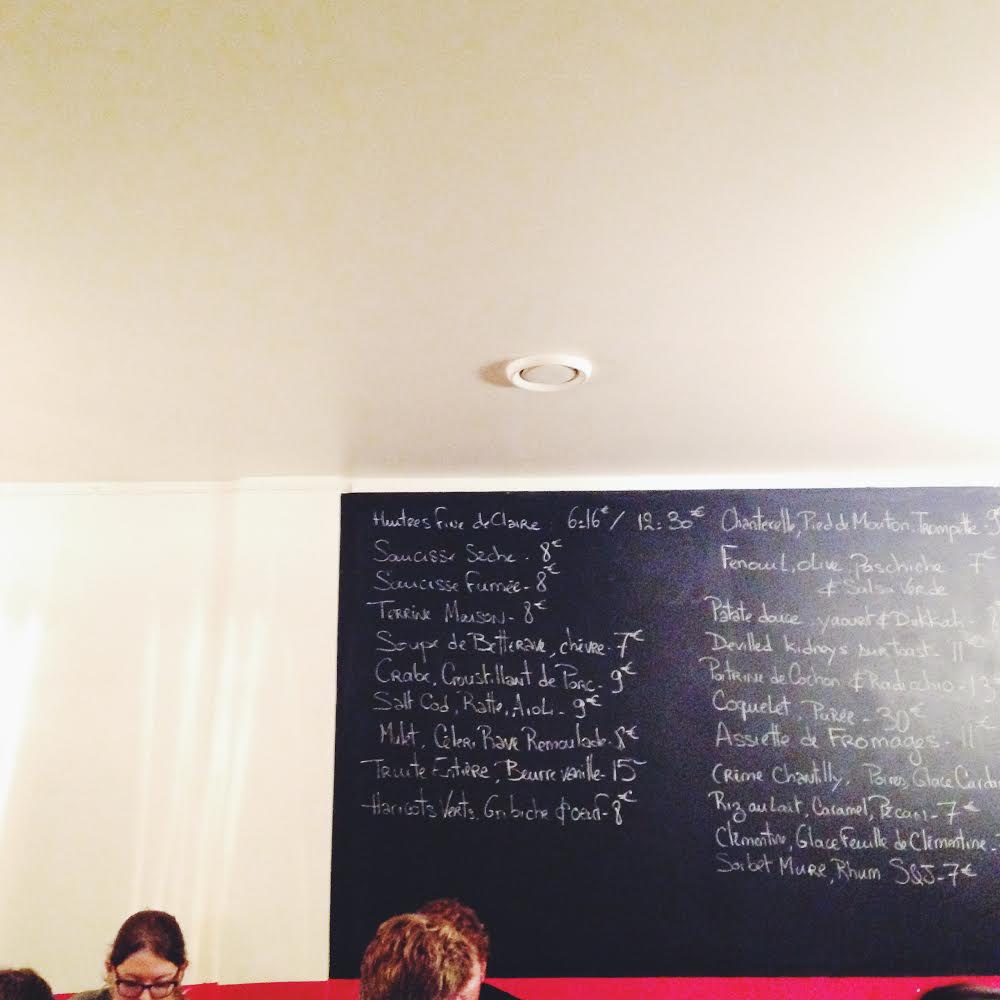 Huitres Fine de Claire : 6:16€ / 12:30€
Saucisse Seche - 8€
Saucisse Fumée - 8€
Terrine Maison - 8€
Soupe de Betterave, chèvre - 7€
Crabe, Croustillant de Porc - 9€
Salt Cod, Ratte, Aioli - 9€
Mulet, Céleri Rave Remoulade - 8€
Truite Entière, Beurre vanille - 15
Haricots Verts, Gribiche & oeuf - 8€
Chanterelle, Pied de Mouton, Trompette - 9
Fenouil, olive, Paschiche 7€
& Salsa Verde
Patate douce, yaourt & Dukkah - 8
Devilled kidneys sur toast - 11€
Poitrine de Cochon & Radicchio - 13€
Coquelet, Purée - 30€
Assiette de Fromages - 11€
Crème Chantilly, Poires, Glace
Riz au Lait, Caramel, Pécan - 7€
Clémentine, Glace Feuille de Clémentine -
Sorbet Mure, Rhum S&J - 7€